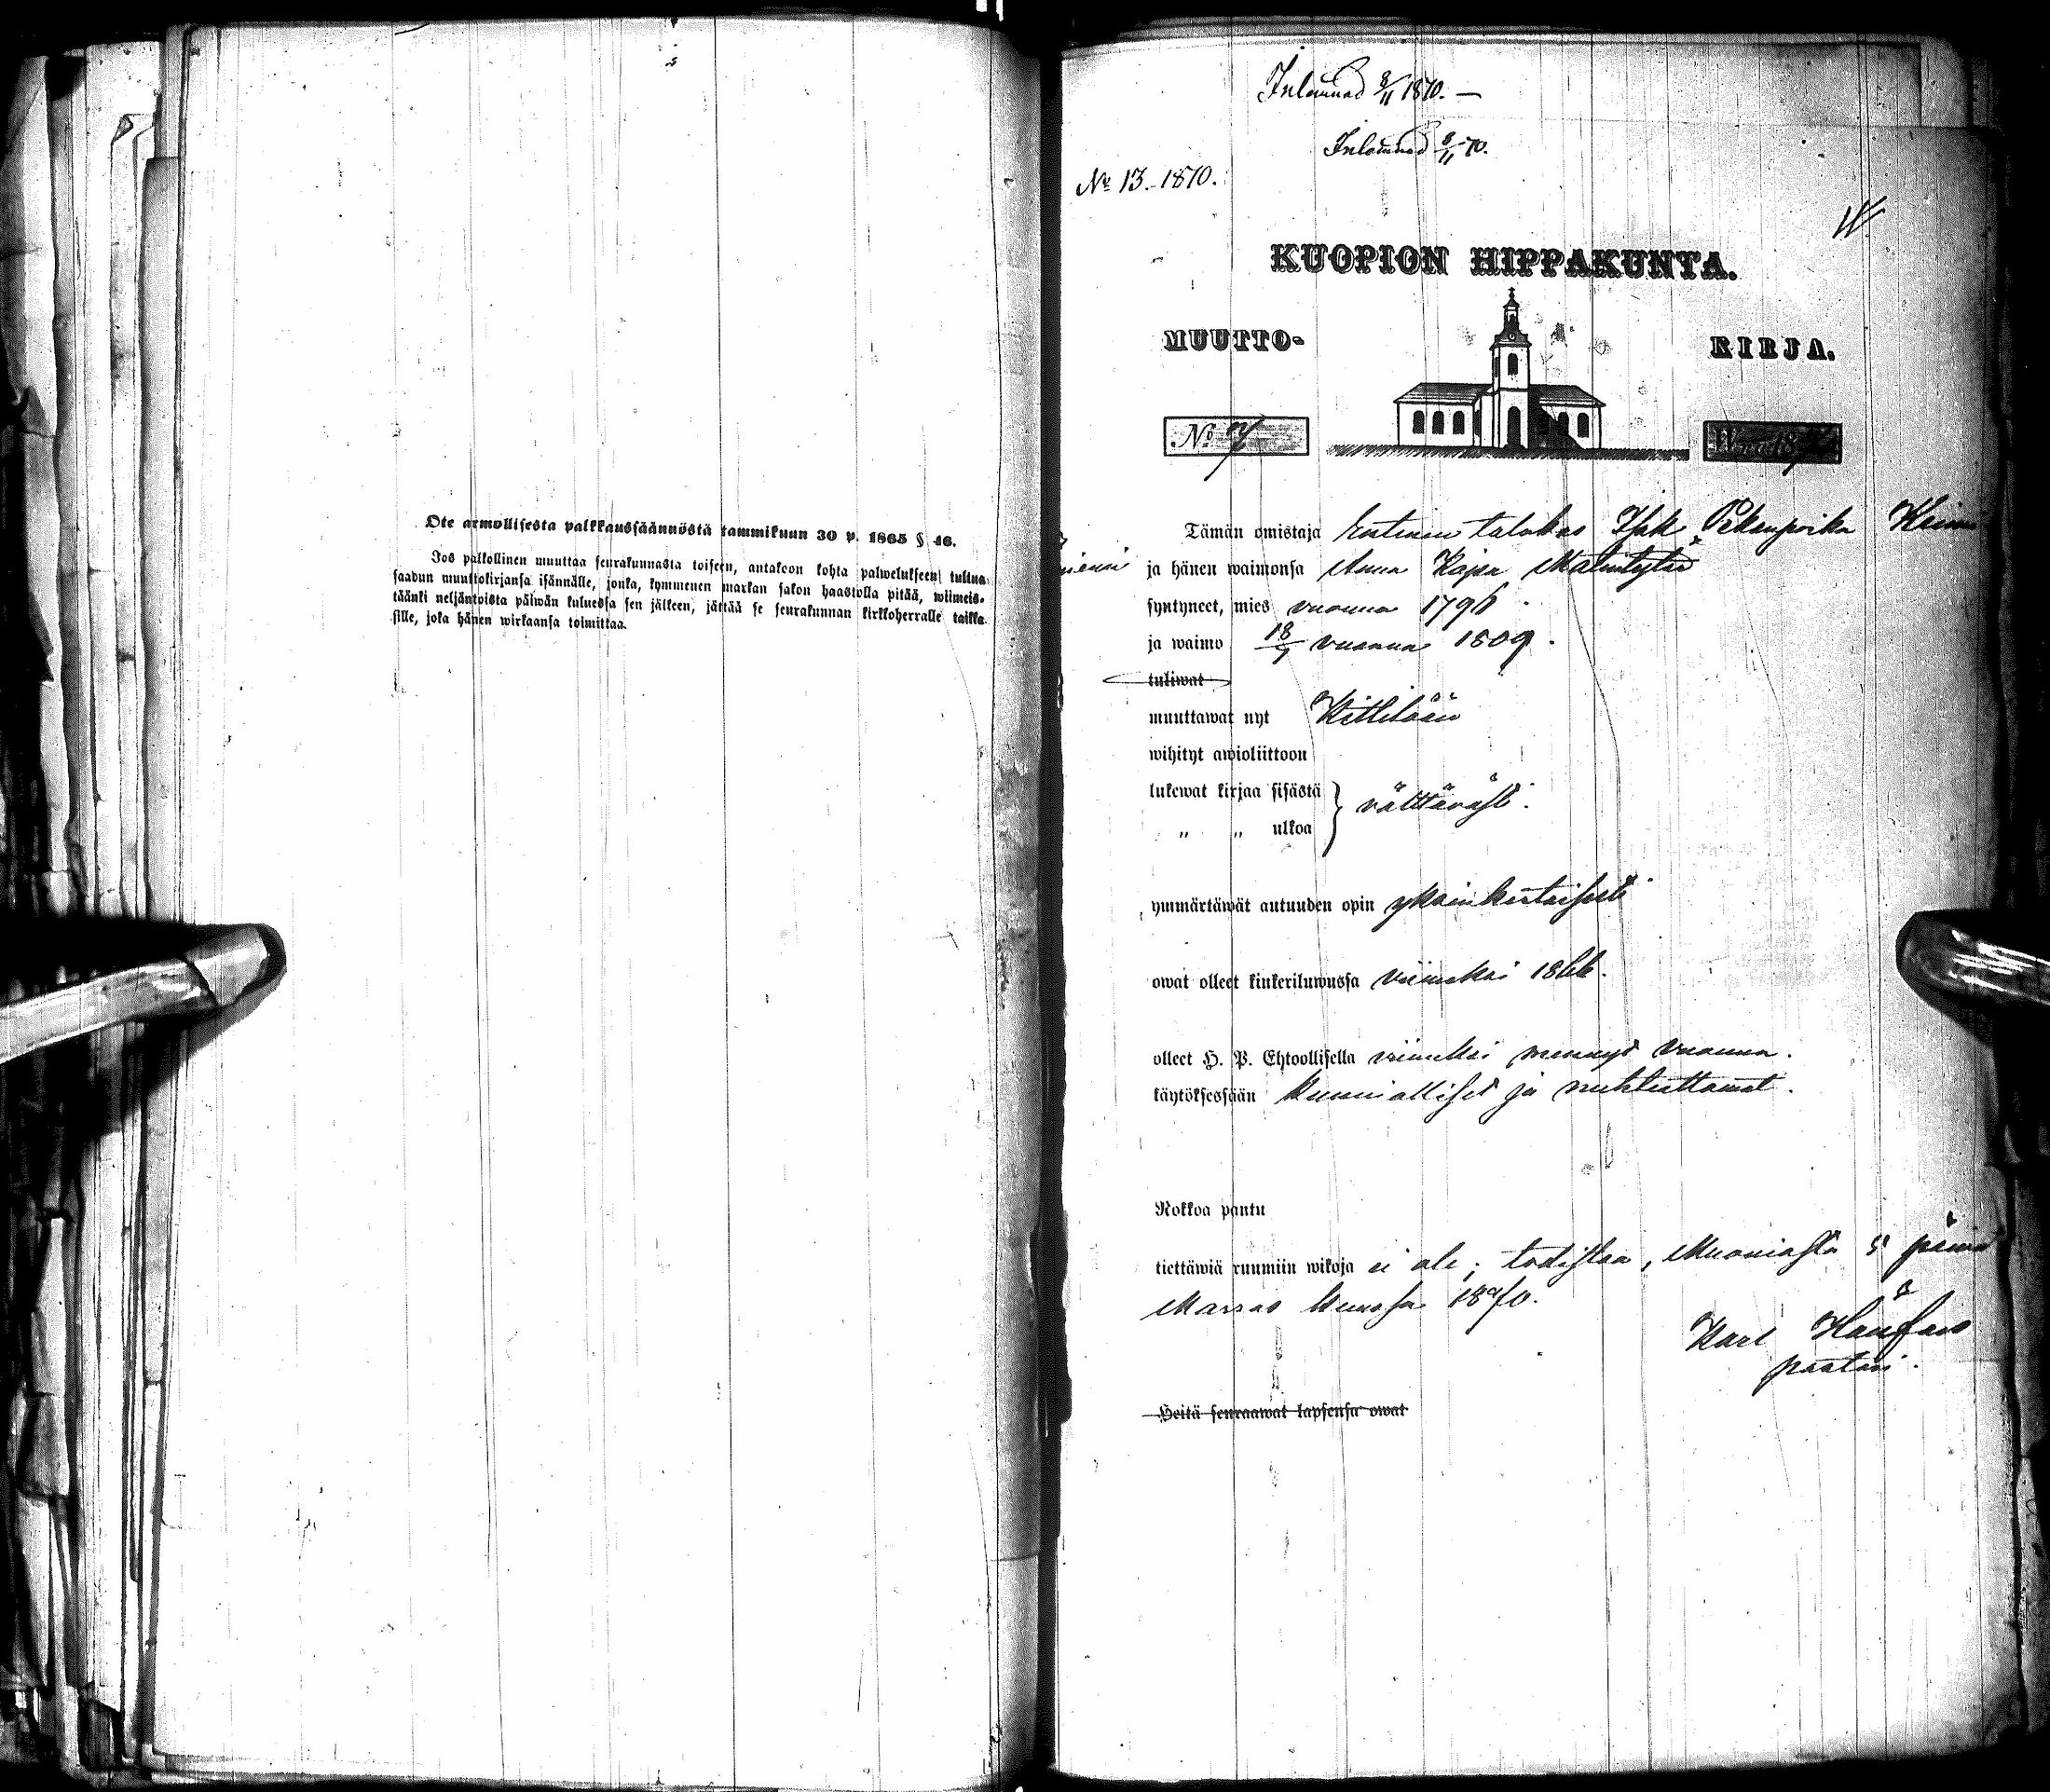 Ote armollisesta palkkaussäännöstä tammikuun 30 p. 1865 § 46.
Jos palkollinen muuttaa seurakunnasta toiseen, antakoon kohta palwelukseen tultua
saadun muuttokirjansa isännälle, jonka, kymmenen markan sakon haastolla pitää, wiimeis-
täänki neljäntoista päiwän kuluessa sen jälkeen, jättää se seurakunnan kirkkoherralle taikka
sille, joka hänen wirkaansa toimittaa.
Inlemnad 8/11 1870. —
Inlemnad 8/11 70.
No 13. 1870.
KUOPION HIPPAKUNTA.
MUUTTO- KIRJA.
No 7 Wna 18
Tämän omistaja Entinen talokas Isak Pekanpoika
ja hänen waimonsa Anna Kajsa Matintytär
syntyneet, mies vuonna 1796
ja waimo 18/7 vuonna 1809.
tuliwat
muuttawat nyt Kittilään
wihityt awioliittoon
lukewat kirjaa sisästä } välttävästi.
„ „ ulkoa
ymmärtäwät autuuden opin yksinkertaisesti
owat olleet kinkeriluwussa viimeksi 1866.
olleet H. P. Ehtoollisella viimeksi mennyt vuonna.
käytöksessään kunnialliset ja nuhteettomat.
Rokkoa pantu
tiettäwiä ruumiin wikoja ei ole; todistaa, Muoniosta 5 päivä
Marras kuussa 1870.
Karl
pastori.
Heitä seuraawat lapsensa owat